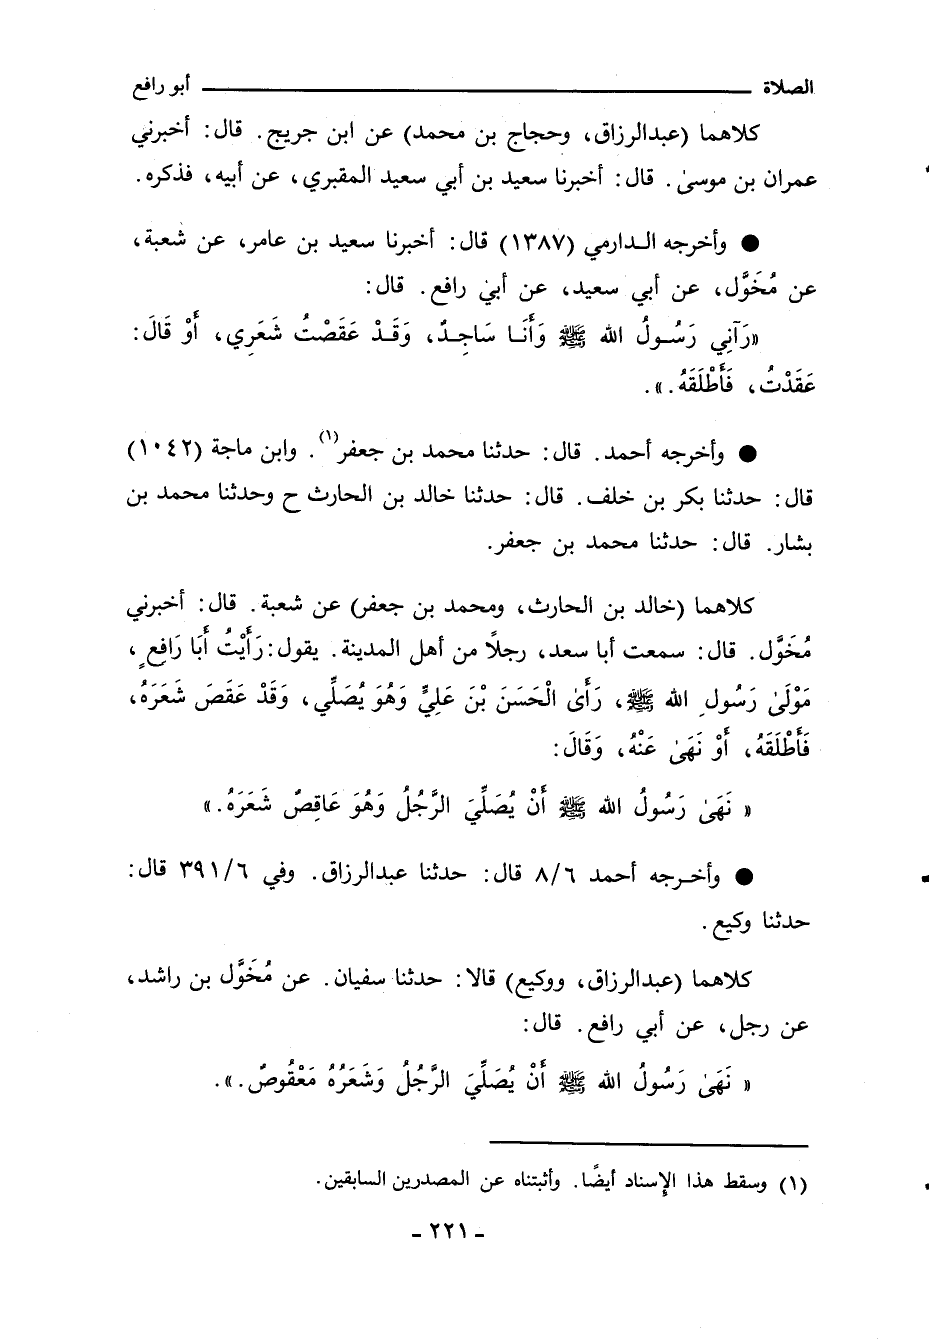 الصلاة ـــــــــــــــــــــــــــــــــ أبو رافع
كلاهما (عبدالرزاق، وحجاج بن محمد) عن ابن جريج. قال: أخبرني
عمران بن موسىٰ. قال: أخبرنا سعيد بن أبي سعيد المقبري، عن أبيه، فذكره.
● وأخرجه الـدارمي (١٣٨٧) قال: أخبرنا سعيد بن عامر، عن شعبة،
عن مُخَوَّل، عن أبي سعيد، عن أبي رافع. قال:
«رَآنِي رَسُـولُ الله ﷺ وَأَنَـا سَاجِدٌ، وَقَـدْ عَقَصْتُ شَعَرِي، أَوْ قَالَ:
عَقَدْتُ، فَأَطْلَقَهُ.».
● وأخرجه أحمد. قال: حدثنا محمد بن جعفر(١). وابن ماجة (١٠٤٢)
قال: حدثنا بكر بن خلف. قال: حدثنا خالد بن الحارث ح وحدثنا محمد بن
بشار. قال: حدثنا محمد بن جعفر.
كلاهما (خالد بن الحارث، ومحمد بن جعفر) عن شعبة. قال: أخبرني
مُخَوَّل. قال: سمعت أبا سعد، رجلاً من أهل المدينة. يقول: رَأَيْتُ أَبَا رَافِعٍ،
مَوْلَىٰ رَسُولِ الله ﷺ، رَأَىٰ الْحَسَنَ بْنَ عَلِيٍّ وَهُوَ يُصَلِّي، وَقَدْ عَقَصَ شَعَرَهُ،
فَأَطْلَقَهُ، أَوْ نَهَىٰ عَنْهُ، وَقَالَ:
« نَهَىٰ رَسُولُ الله ﷺ أَنْ يُصَلِّيَ الرَّجُلُ وَهُوَ عَاقِصٌ شَعَرَهُ.»
● وأخـرجه أحمد ٨/٦ قال: حدثنا عبدالرزاق. وفي ٣٩١/٦ قال:
حدثنا وكيع.
كلاهما (عبدالرزاق، ووكيع) قالا: حدثنا سفيان. عن مُخَوَّل بن راشد،
عن رجل، عن أبي رافع. قال:
« نَهَىٰ رَسُولُ الله ﷺ أَنْ يُصَلِّيَ الرَّجُلُ وَشَعَرُهُ مَعْقُوصٌ.».
(١) وسقط هذا الإسناد أيضًا. وأثبتناه عن المصدرين السابقين.
- ٢٢١ -